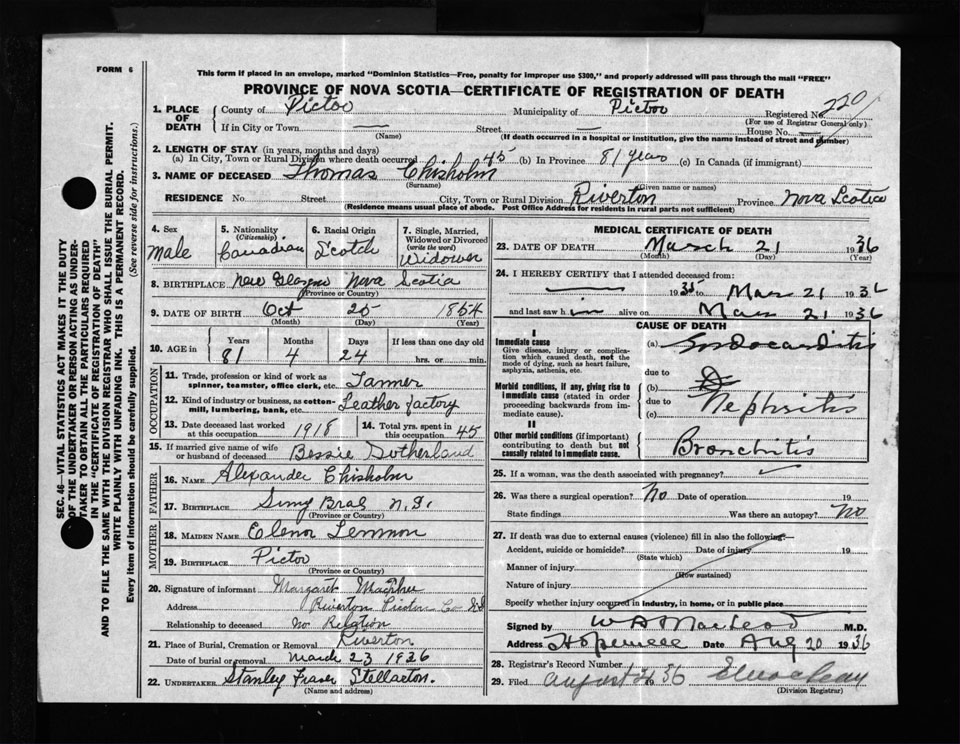 FORM 6
This form if placed in an envelope, marked "Dominion Statistics—Free, penalty for improper use $300," and properly addressed will pass through the mail "FREE"
PROVINCE OF NOVA SCOTIA—CERTIFICATE OF REGISTRATION OF DEATH
1. PLACE OF DEATH County of Pictou Municipality of Pictou Registered No. 220
(For use of Registrar General only)
If in City or Town — Street — House No. —
(Name) (If death occurred in a hospital or institution, give the name instead of street and number)
2. LENGTH OF STAY (in years, months and days)
(a) In City, Town or Rural Division where death occurred 45 (b) In Province 81 years (c) In Canada (if immigrant)
3. NAME OF DECEASED Thomas Chisholm
(Surname) (Given name or names)
RESIDENCE No. Street City, Town or Rural Division Riverton Province Nova Scotia
(Residence means usual place of abode. Post Office Address for residents in rural parts not sufficient)
4. Sex Male
5. Nationality (Citizenship) Canadian
6. Racial Origin Scotch
7. Single, Married, Widowed or Divorced (write the word) Widower
8. BIRTHPLACE New Glasgow Nova Scotia
(Province or Country)
9. DATE OF BIRTH Oct 25 1854
(Month) (Day) (Year)
10. AGE in Years Months Days If less than one day old
81 4 24 hrs. or min.
OCCUPATION
11. Trade, profession or kind of work as spinner, teamster, office clerk, etc. Tanner
12. Kind of industry or business, as cotton-mill, lumbering, bank, etc. Leather factory
13. Date deceased last worked at this occupation 1918
14. Total yrs. spent in this occupation 45
15. If married give name of wife or husband of deceased Bessie Sutherland
FATHER
16. Name Alexander Chisholm
17. Birthplace Braes N.S.
(Province or Country)
MOTHER
18. MAIDEN NAME Elenor Lemmon
19. BIRTHPLACE Pictou
(Province or Country)
20. Signature of informant Margaret MacPhee
Address Riverton Pictou Co N.S.
Relationship to deceased No Relation
21. Place of Burial, Cremation or Removal Riverton
Date of burial or removal March 23 1936
22. UNDERTAKER Stanley Fraser Stellarton.
(Name and address)
MEDICAL CERTIFICATE OF DEATH
23. DATE OF DEATH March 21 1936
(Month) (Day) (Year)
24. I HEREBY CERTIFY that I attended deceased from:
— 1935 to Mar 21 1936
and last saw him alive on Mar 21 1936
CAUSE OF DEATH
I
Immediate cause (a) Endocarditis
Give disease, injury or complication which caused death, not the mode of dying, such as heart failure, asphyxia, asthenia, etc.
due to
(b)
Morbid conditions, if any, giving rise to immediate cause (stated in order proceeding backwards from immediate cause).
due to
(c) Nephritis
II
Other morbid conditions (if important) contributing to death but not causally related to immediate cause. Bronchitis
25. If a woman, was the death associated with pregnancy?
26. Was there a surgical operation? No Date of operation 19
State findings Was there an autopsy? No
27. If death was due to external causes (violence) fill in also the following:—
Accident, suicide or homicide? Date of injury 19
(State which)
Manner of injury
(How sustained)
Nature of injury
Specify whether injury occurred in industry, in home, or in public place
Signed by W A MacLeod M.D.
Address Hopewell Date Aug 20 1936
28. Registrar's Record Number
29. Filed August 1936
(Division Registrar)
SEC. 46—VITAL STATISTICS ACT MAKES IT THE DUTY
OF THE UNDERTAKER OR PERSON ACTING AS UNDER-
TAKER TO OBTAIN ALL THE PARTICULARS REQUIRED
IN THE "CERTIFICATE OF REGISTRATION OF DEATH"
AND TO FILE THE SAME WITH THE DIVISION REGISTRAR WHO SHALL ISSUE THE BURIAL PERMIT.
WRITE PLAINLY WITH UNFADING INK. THIS IS A PERMANENT RECORD.
Every item of information should be carefully supplied. (See reverse side for instructions.)